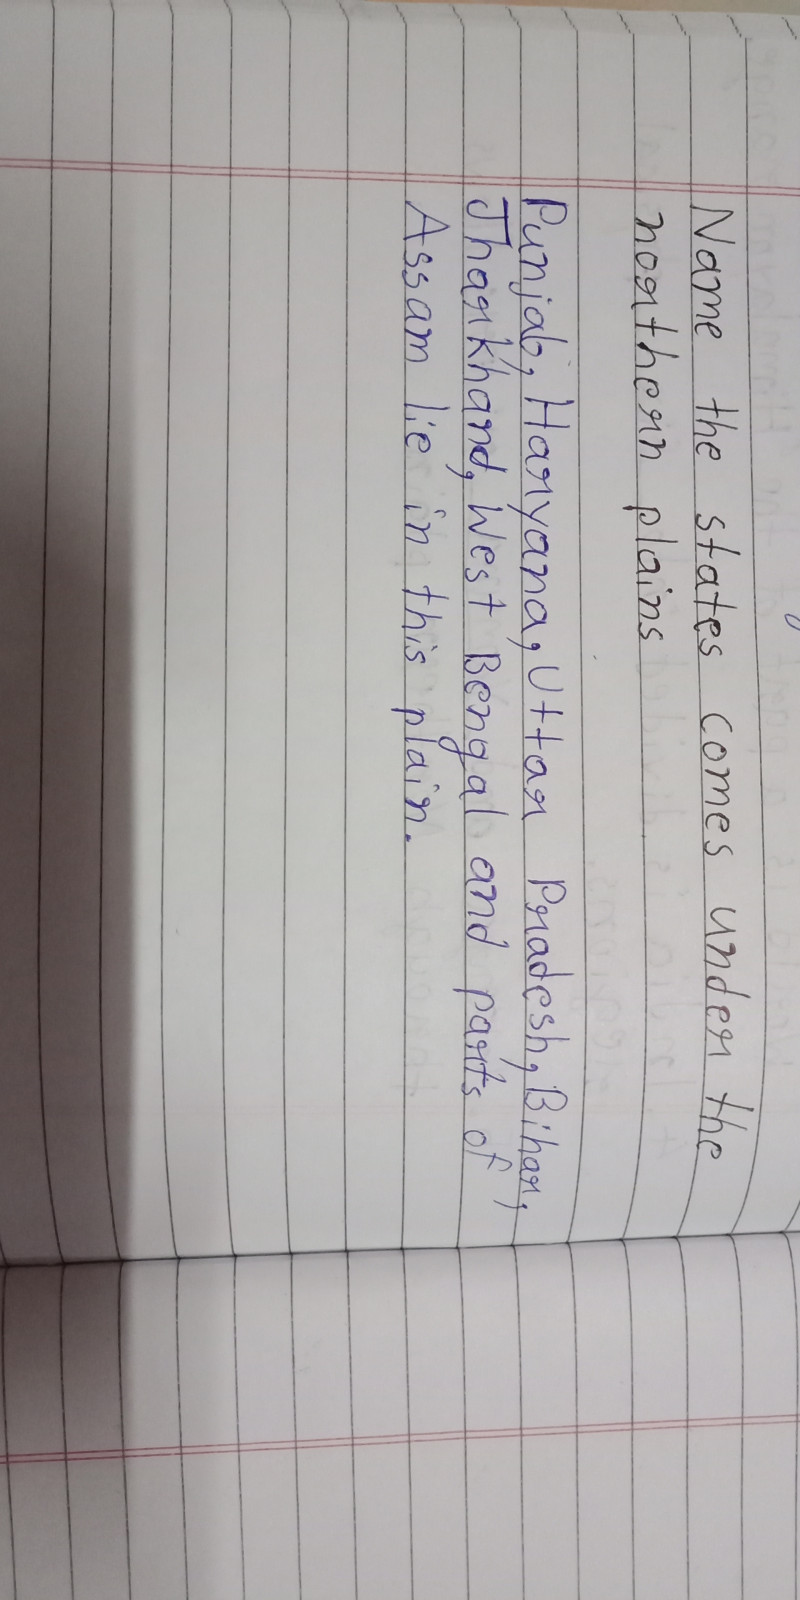 Name the states comes under the
northern plains
Punjab, Haryana, Uttar Pradesh, Bihar,
Jharkhand, West Bengal and parts of
Assam lie in this plain.